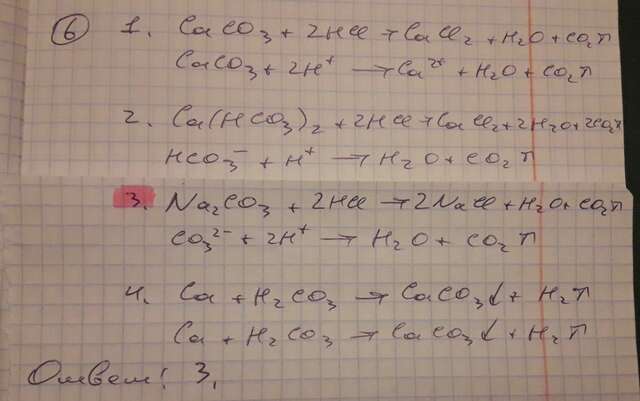 ⑥ 1. CaCO₃ + 2HCl → CaCl₂ + H₂O + CO₂↑
CaCO₃ + 2H⁺ → Ca²⁺ + H₂O + CO₂↑
2. Ca(HCO₃)₂ + 2HCl → CaCl₂ + 2H₂O + 2CO₂↑
HCO₃⁻ + H⁺ → H₂O + CO₂↑
3. Na₂CO₃ + 2HCl → 2NaCl + H₂O + CO₂↑
CO₃²⁻ + 2H⁺ → H₂O + CO₂↑
4. Ca + H₂CO₃ → CaCO₃↓ + H₂↑
Ca + H₂CO₃ → CaCO₃↓ + H₂↑
Ответ: 3.